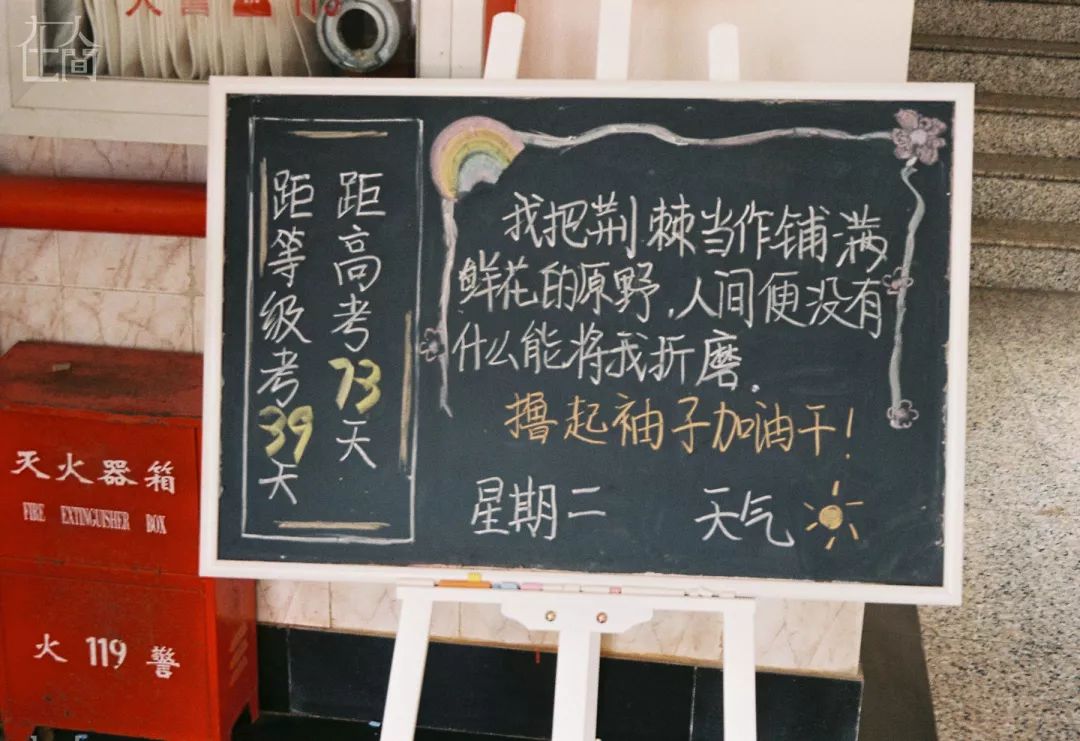 在人間
火警 119
距高考73天
距等级考39天
我把荆棘当作铺满
鲜花的原野,人间便没有
什么能将我折磨.
撸起袖子加油干!
星期二 天气
灭火器箱
FIRE EXTINGUISHER BOX
火 119 警